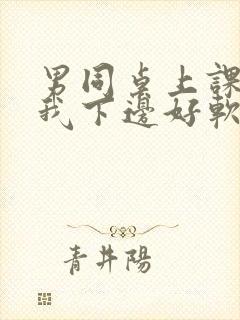 男同桌上課
我下邊好軟
青井陽